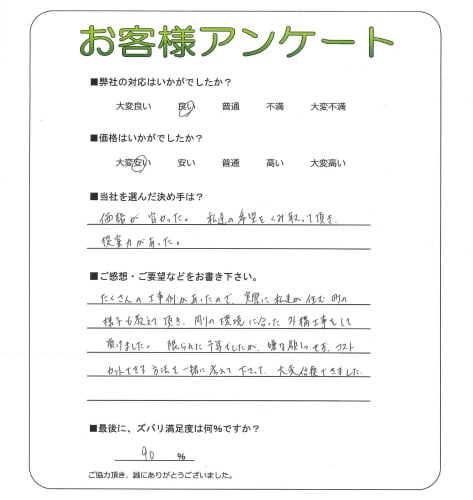 お客様アンケート
■弊社の対応はいかがでしたか？
大変良い 良い 普通 不満 大変不満
■価格はいかがでしたか？
大変安い 安い 普通 高い 大変高い
■当社を選んだ決め手は？
価格が安かった。 私達の希望をくみ取って頂き、
提案力があった。
■ご感想・ご要望などをお書き下さい。
たくさんの工事例があったので、実際に私達が住む町の
様子も教えて頂き、周りの環境に合った外構工事をして
頂けました。 限られた予算でしたが、嫌な顔もせず、コスト
カットできる方法を一緒に考えて下さって、大変信頼できました
■最後に、ズバリ満足度は何％ですか？
90 ％
ご協力頂き、誠にありがとうございました。